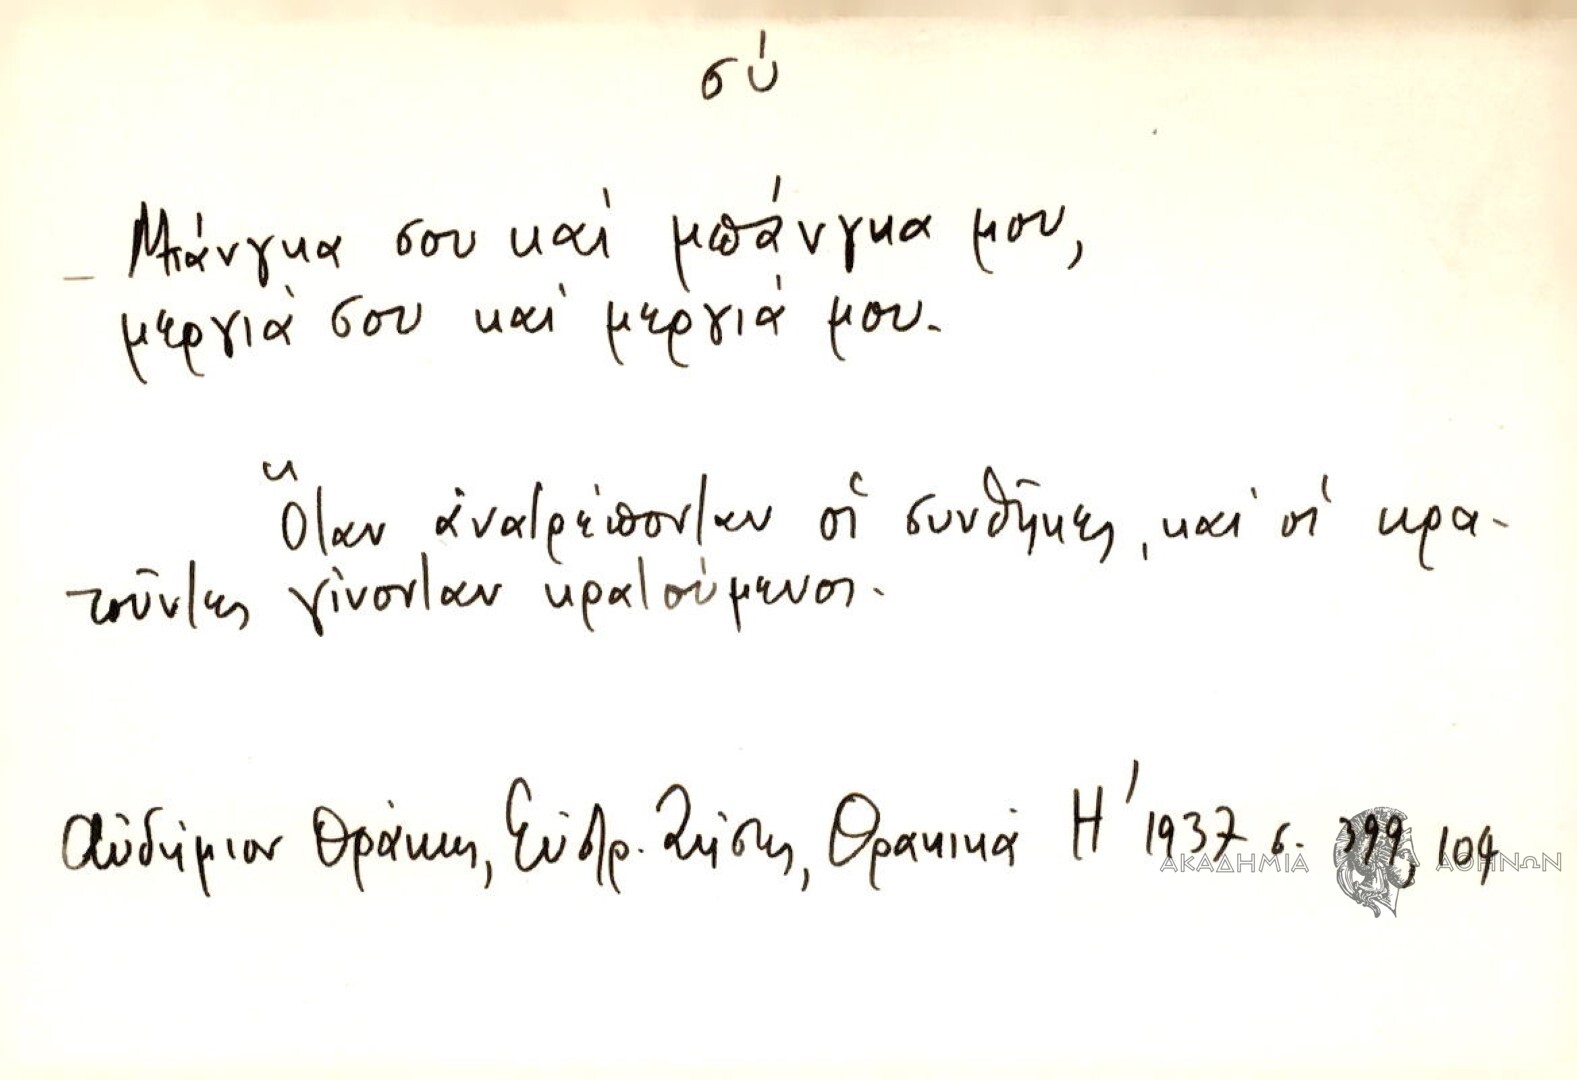 σύ
– Μπάνγκα σου καὶ μπάνγκα μου,
μεργιὰ σου καὶ μεργιά μου.
Ὅταν ἀνατρέπονταν οἱ συνθῆκες, καὶ οἱ κρα-
τοῦντες γίνονταν κρατούμενοι.
Αὐδήμιον Θράκης, Εὐστρ. Ζήσης, Θρακικά Η' 1937 σ. 399, 104
ΑΚΑΔΗΜΙΑ ΑΘΗΝΩΝ